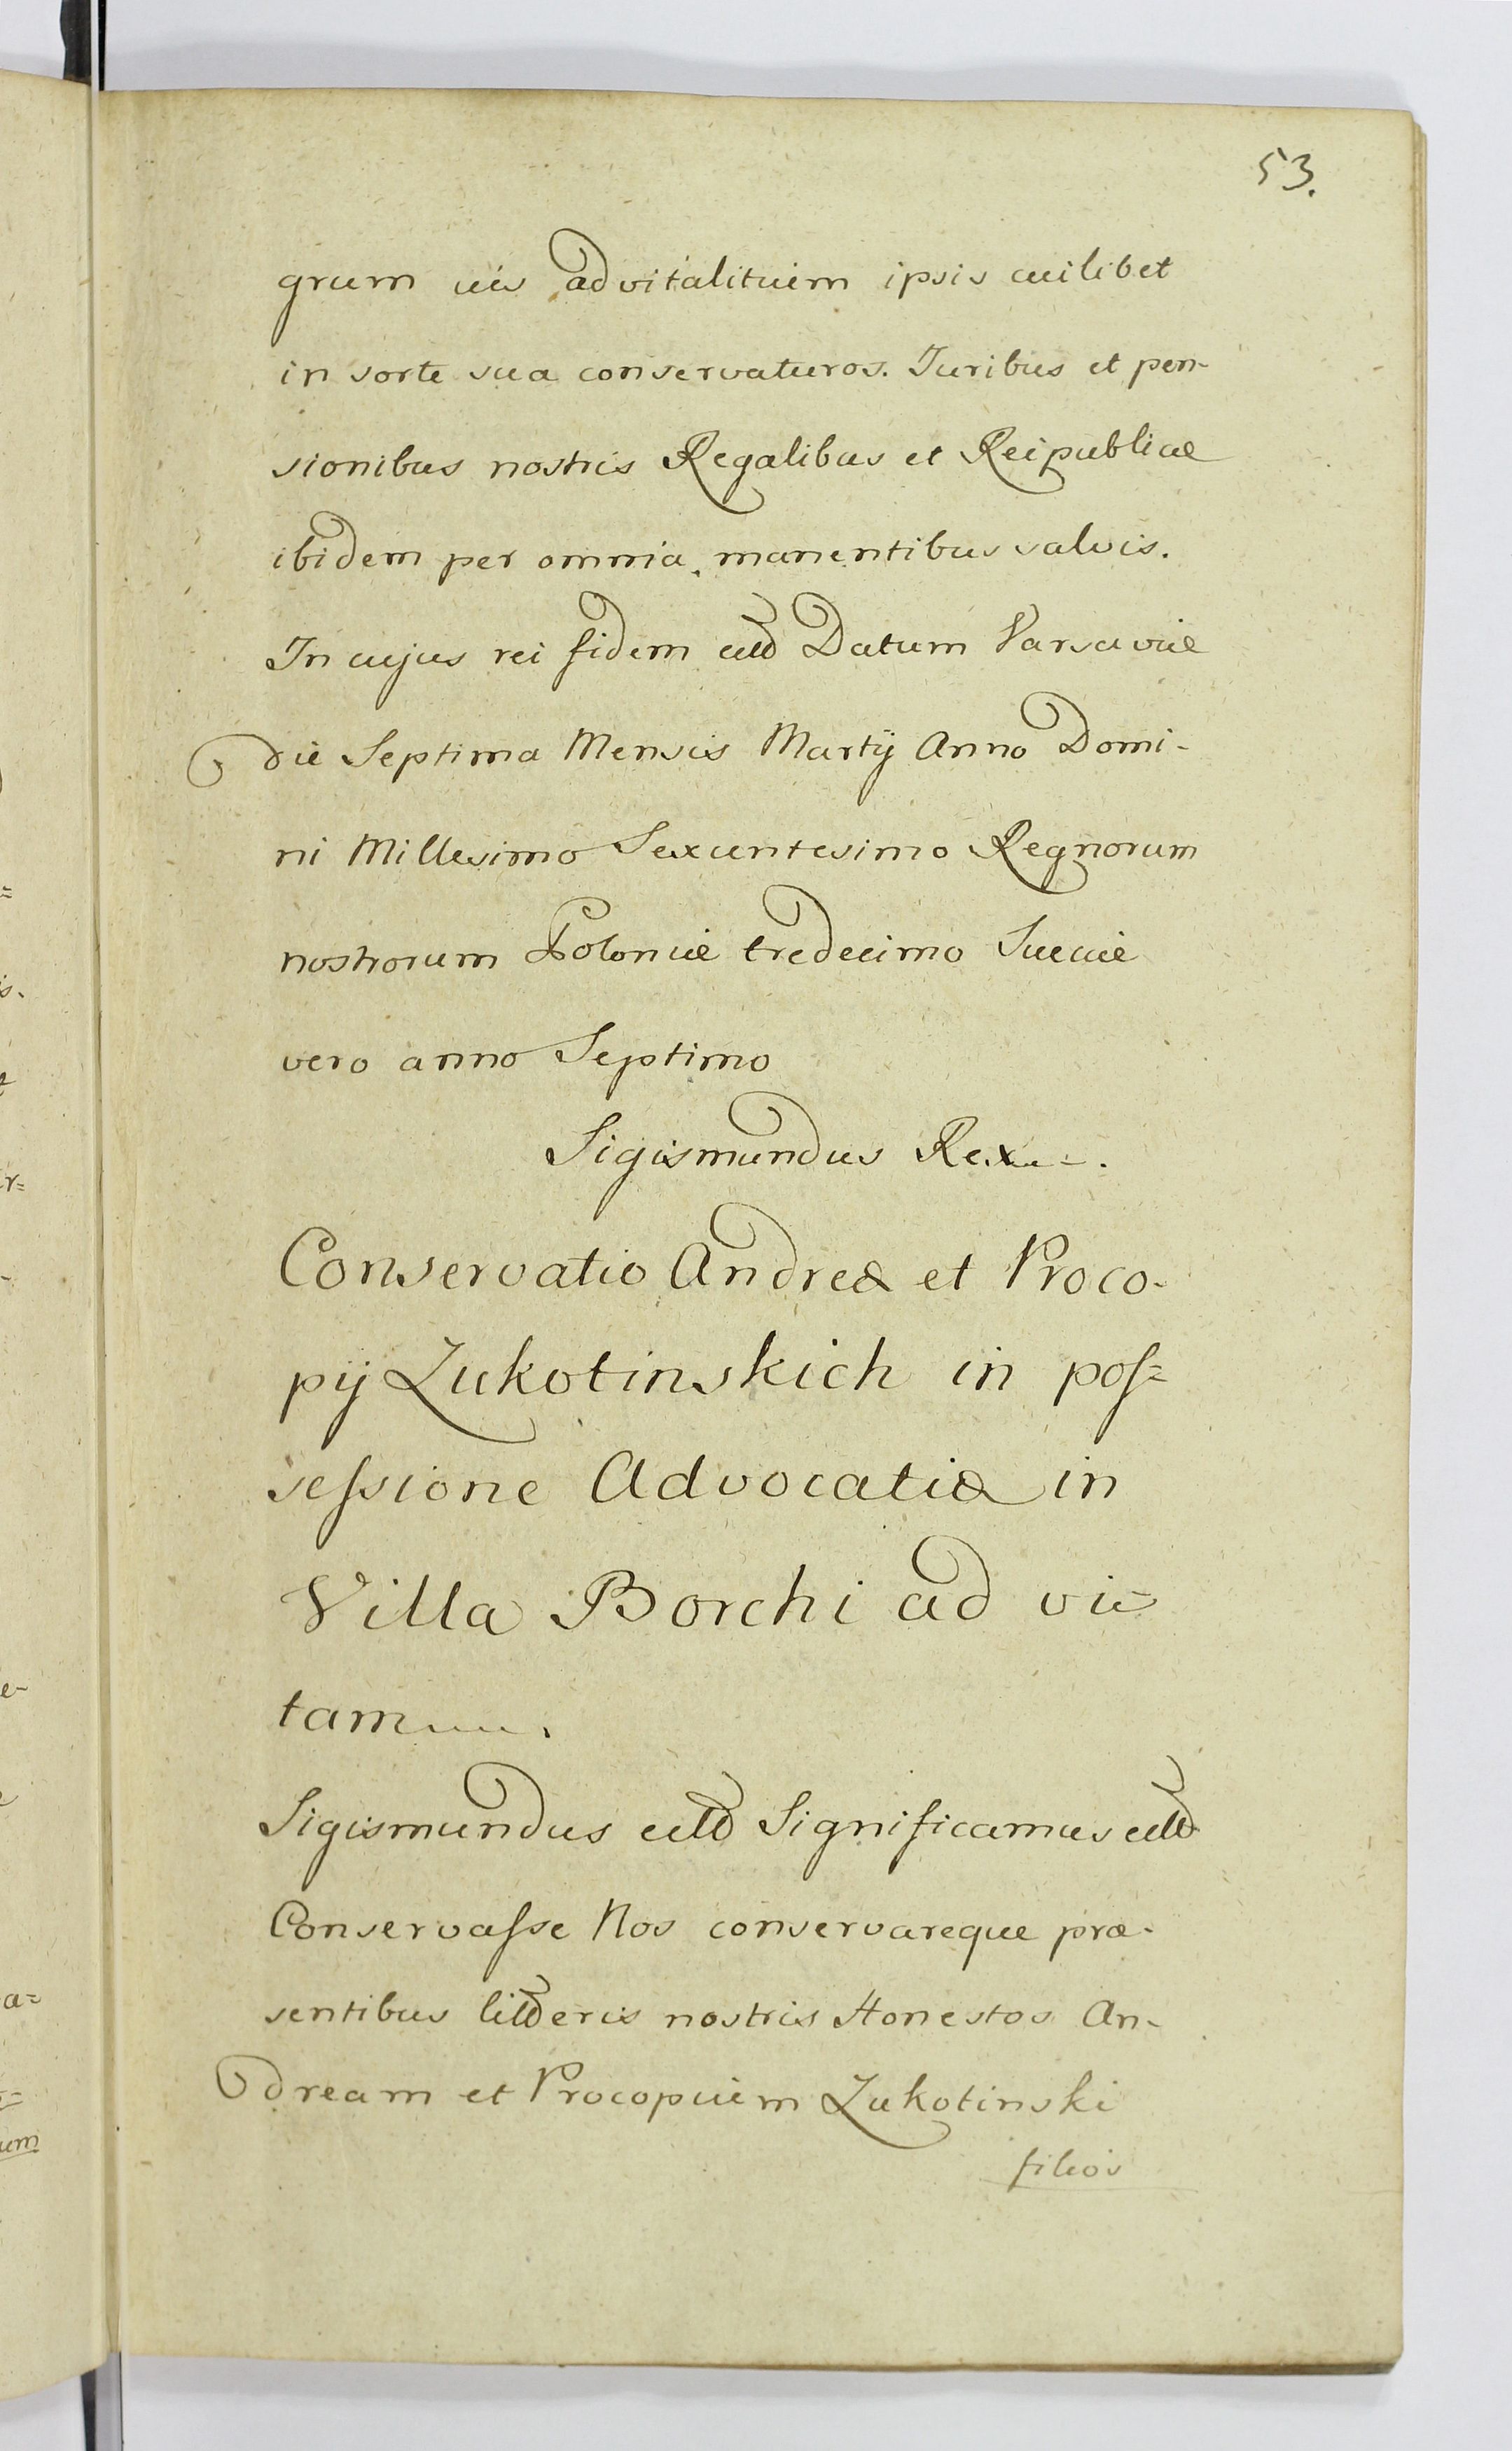 53.
grum ius advitalituim ipsis cuilibet
in sorte sua conservaturos. Juribus et pen-
sionibus nostris Regalibus et Reipublicæ
ibidem per omnia manentibus salvis.
In cujus rei fidem ettt Datum Varsaviæ
die Septima Mensis Martij Anno Domi-
ni Millesimo Sexcentesimo Regnorum
nostrorum Poloniæ tredecimo Sueciæ
vero anno Septimo
Sigismundus Rex
Conservatio Andreæ et Proco-
pij Zukotinskich in pos=
sessione Advocatiæ in
Villa Borchi ad vi=
tam
Sigismundus ettt Significamus ettt
Conservasse Nos conservareque præ-
sentibus litteris nostris Honestos An-
dream et Procopium Zukotinski
filios